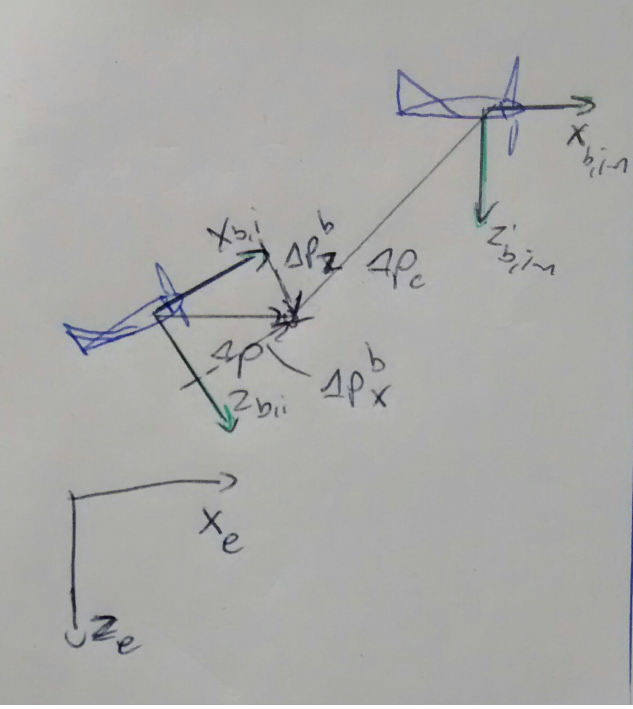 x_b,i-1
z_b,i-1
x_b,i
Δp_z^b
Δp_c
Δp
Δp_x^b
z_b,i
x_e
z_e